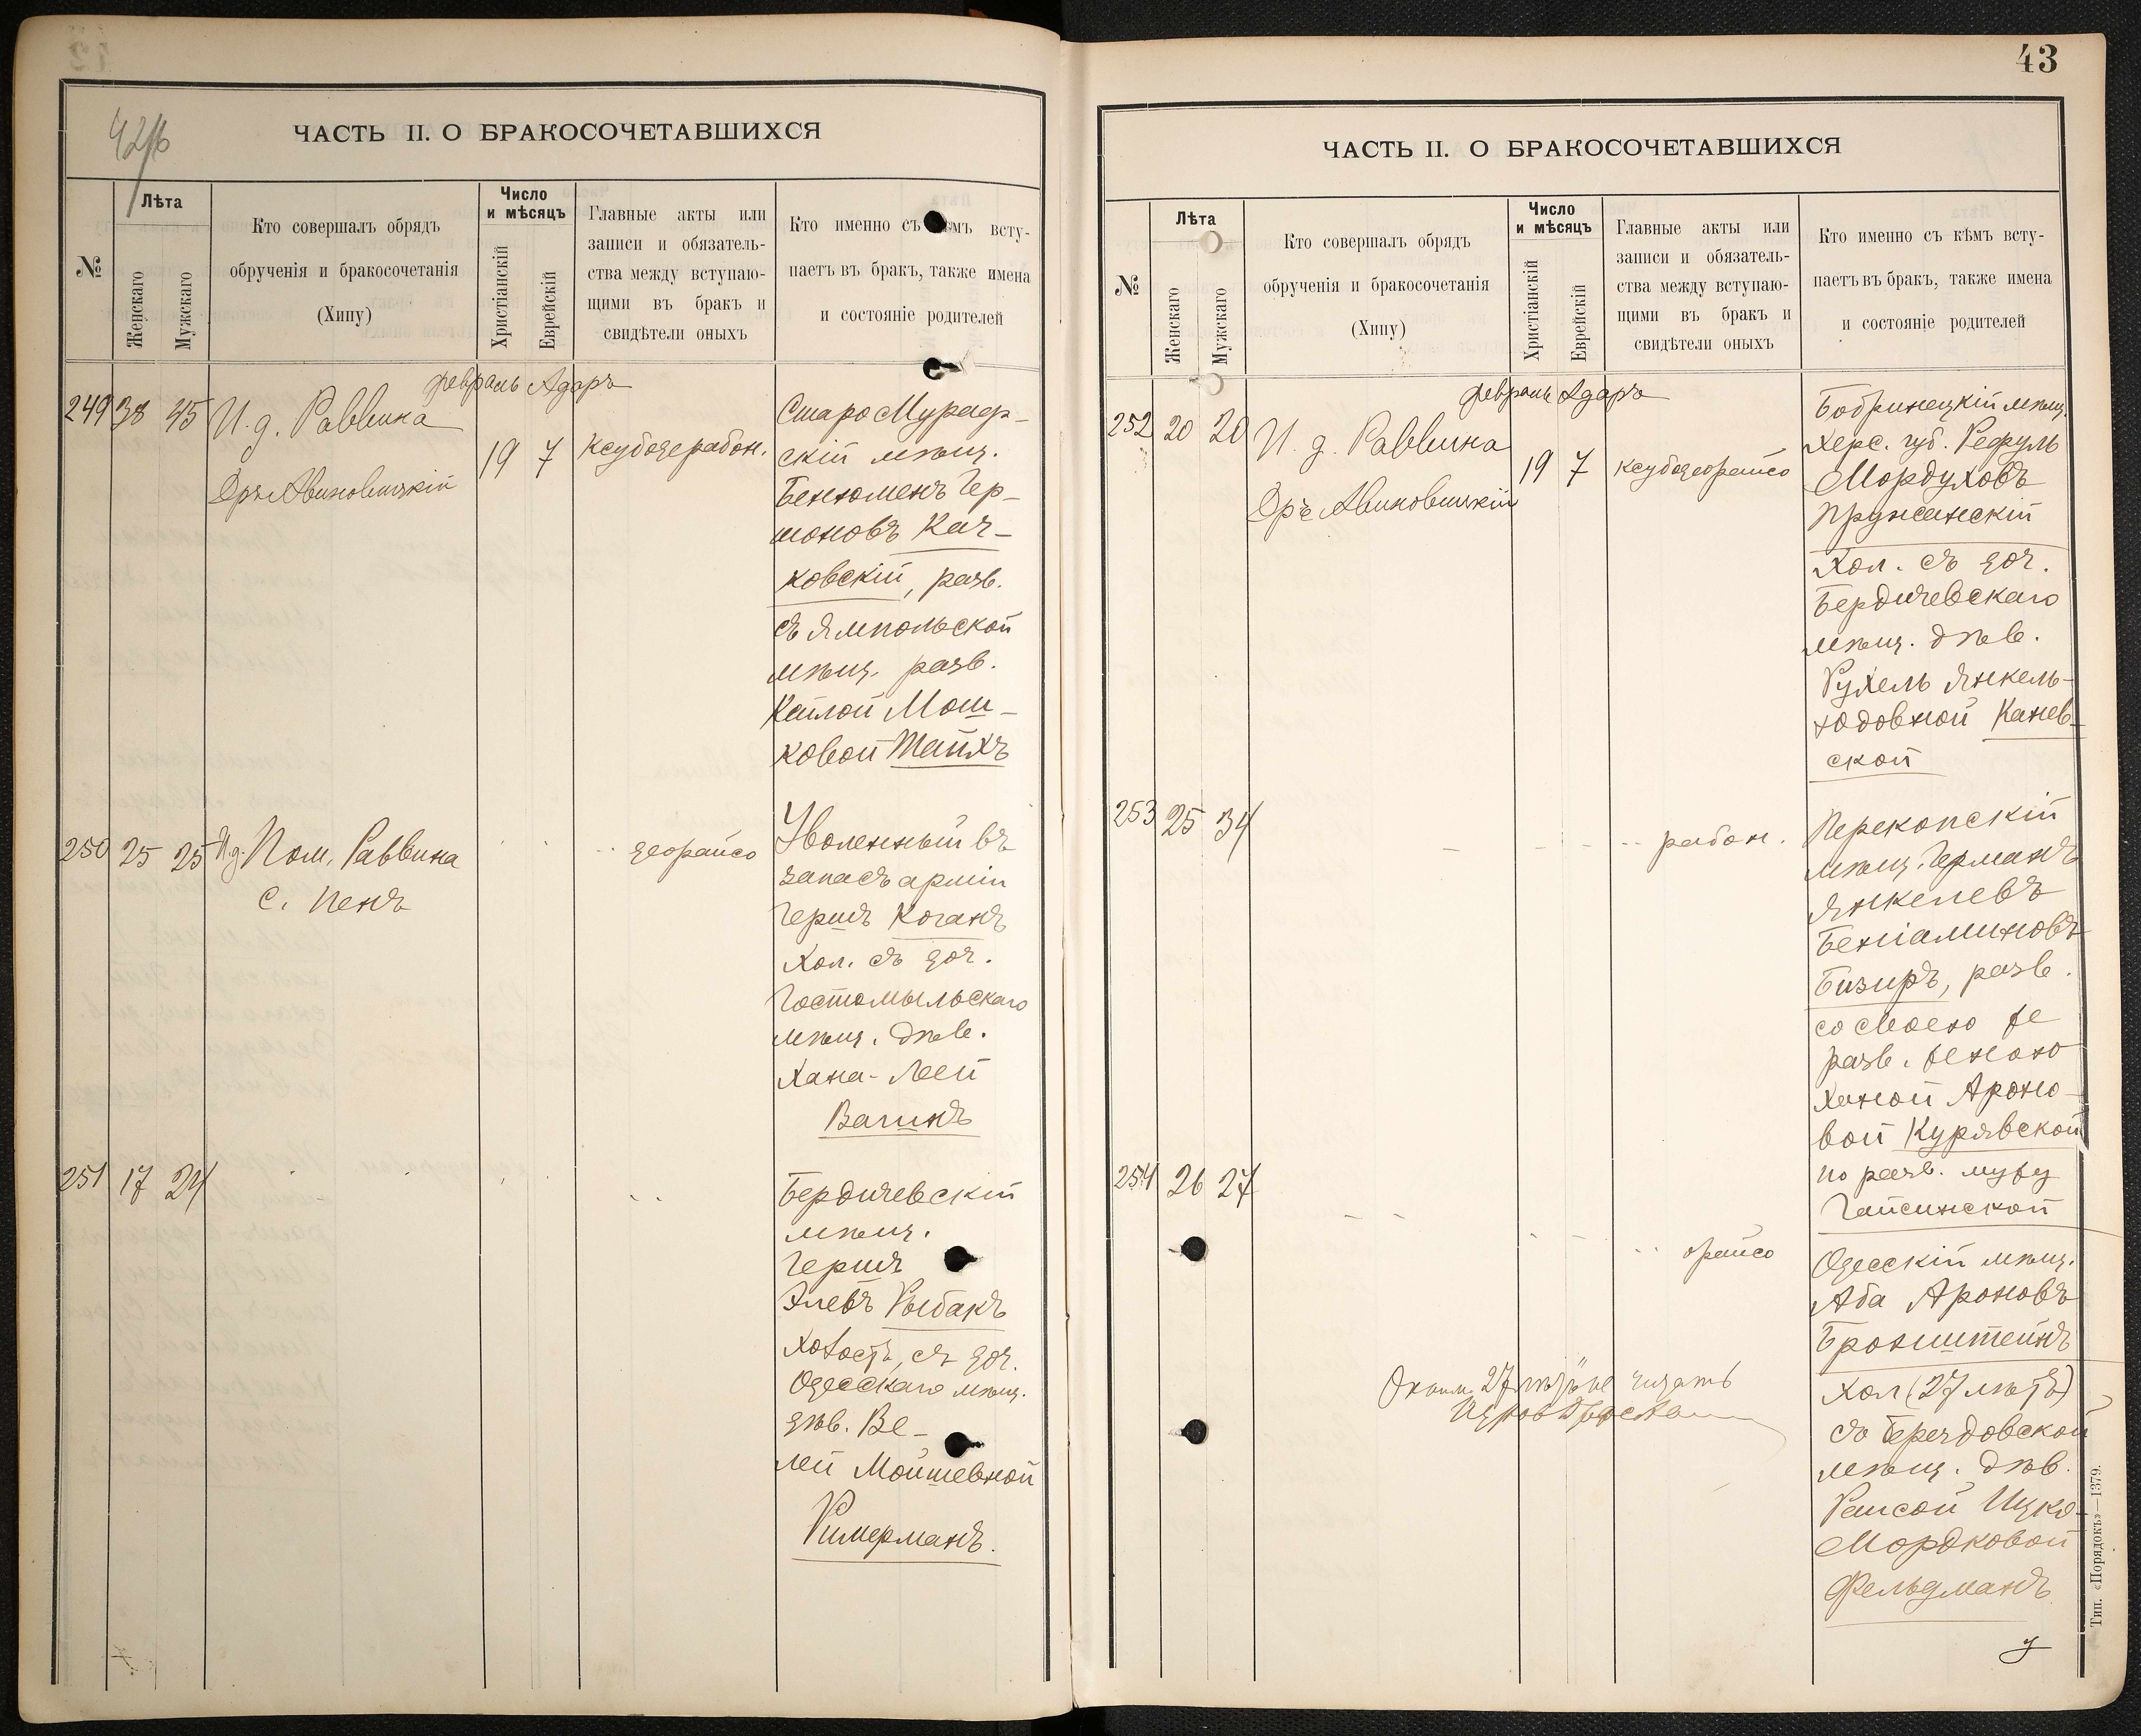 42/б
ЧАСТЬ II. О БРАКОСОЧЕТАВШИХСЯ
№
Лѣта
Женскаго
Мужскаго
Кто совершалъ обрядъ
обрученія и бракосочетанія
(Хипу)
Число
и мѣсяцъ
Христіанскій
Еврейскій
Главные акты или
записи и обязатель-
ства между вступаю-
щими въ бракъ и
свидѣтели оныхъ
Кто именно съ кѣмъ всту-
паетъ въ бракъ, также имена
и состояніе родителей
февраль Адаръ
249 38 45 И. д. Раввина
Дръ Авиновицкій
19 7
Старо Мураф-
скій мѣщ.
Беньоменъ Гер-
шоновъ Кач-
ковскій, разв.
съ Ямпольской
мѣщ. разв.
Кейлой Мош-
ковой Тайхъ
250 25 25 И.д. Пом. Раввина
С. Пенъ
деорайсо
Уволенный въ
запасъ арміи
Гершъ Коганъ
Хол. съ доч.
Гостомыльскаго
мѣщ. дѣв.
Хана-Леей
Вагинъ
251 17 24
Бердичевскій
мѣщ.
Гершъ
Элевъ Рыбакъ
Холостъ, съ доч.
Одесскаго мѣщ.
дѣв. Ве-
лей Мойшевной
Римерманъ.
43
ЧАСТЬ II. О БРАКОСОЧЕТАВШИХСЯ
№
Лѣта
Женскаго
Мужскаго
Кто совершалъ обрядъ
обрученія и бракосочетанія
(Хипу)
Число
и мѣсяцъ
Христіанскій
Еврейскій
Главные акты или
записи и обязатель-
ства между вступаю-
щими въ бракъ и
свидѣтели оныхъ
Кто именно съ кѣмъ всту-
паетъ въ бракъ, также имена
и состояніе родителей
февраль Адаръ
252 20 20 И. д. Раввина
Дръ Авиновицкій
19 7
Бобринецкій мѣщ.
Херс. губ. Рефуль
Мордуховъ
Пружанскій
Хол. съ доч.
Бердичевскаго
мѣщ. дѣв.
Рухель Янкель-
юдовной Канев-
ской
253 25 34
рабон.
Перекопскій
мѣщ. Германъ
Янкелевъ
Беніаминовъ
Бизиръ, разв.
со своею же
разв. женою
Ханой Ароно-
вой Курявской
по разв. мужу
Гайсинской
254 26 27
орайсо
Одесскій мѣщ.
Аба Ароновъ
Бронштейнъ
Хол (27 лѣтъ)
съ Бердовской
мѣщ. дѣв.
Раисой Ицко-
Мордковой
Фельдманъ
27 лѣтъ не читать
Тип. «Порядокъ»—1379.